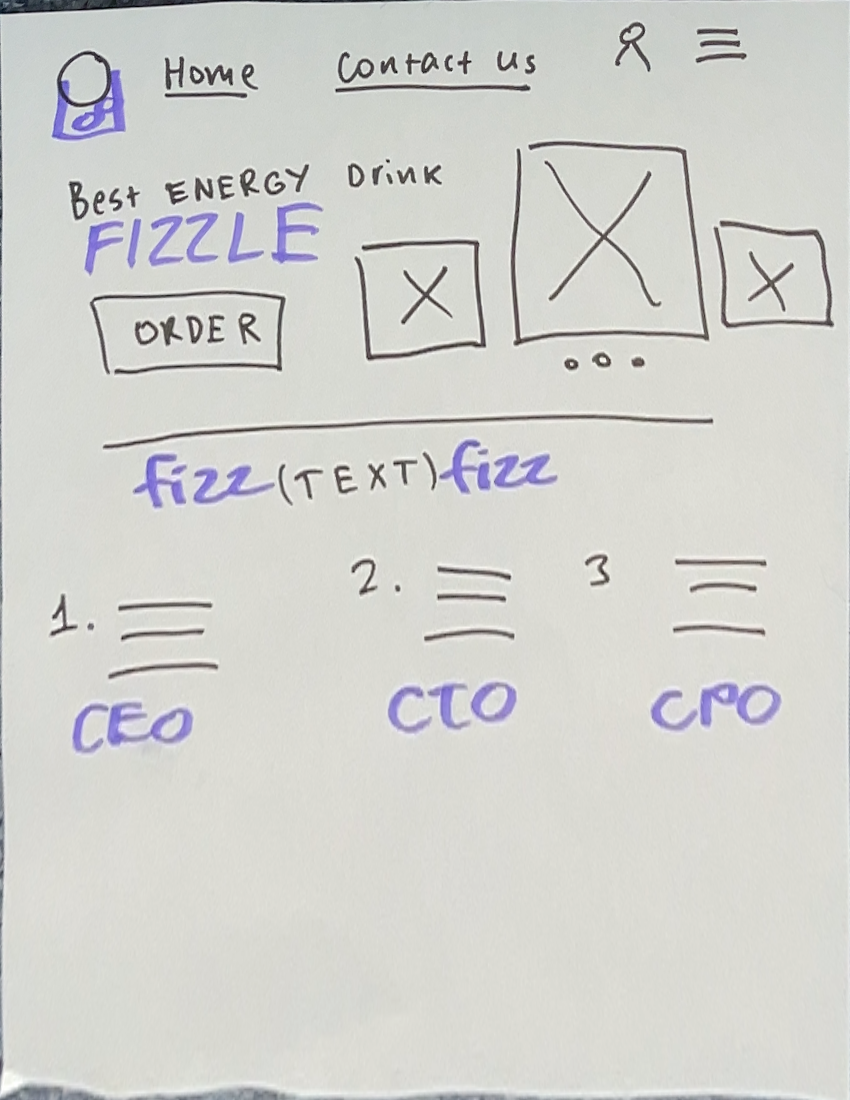 Home Contact us
Best ENERGY Drink
FIZZLE
ORDER
fizz (TEXT) fizz
1. 2. 3
CEO CTO CPO